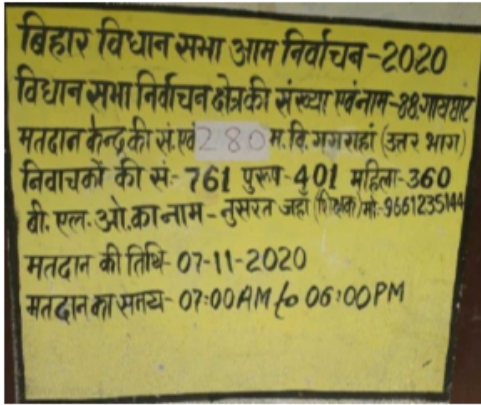 बिहार विधान सभा आम निर्वाचन-2020
विधान सभा निर्वाचन क्षेत्र की संख्या एवं नाम-88.गायघाट
मतदान केन्द्र की सं.एवं 280 म.वि.गगराहां (उत्तर भाग)
निर्वाचकों की सं:- 761 पुरूष-401 महिला-360
बी.एल.ओ.का नाम-नुसरत जहाँ (शिक्षक) मो:-9661235144
मतदान की तिथि-07-11-2020
मतदान का समय-07:00AM to 06:00PM